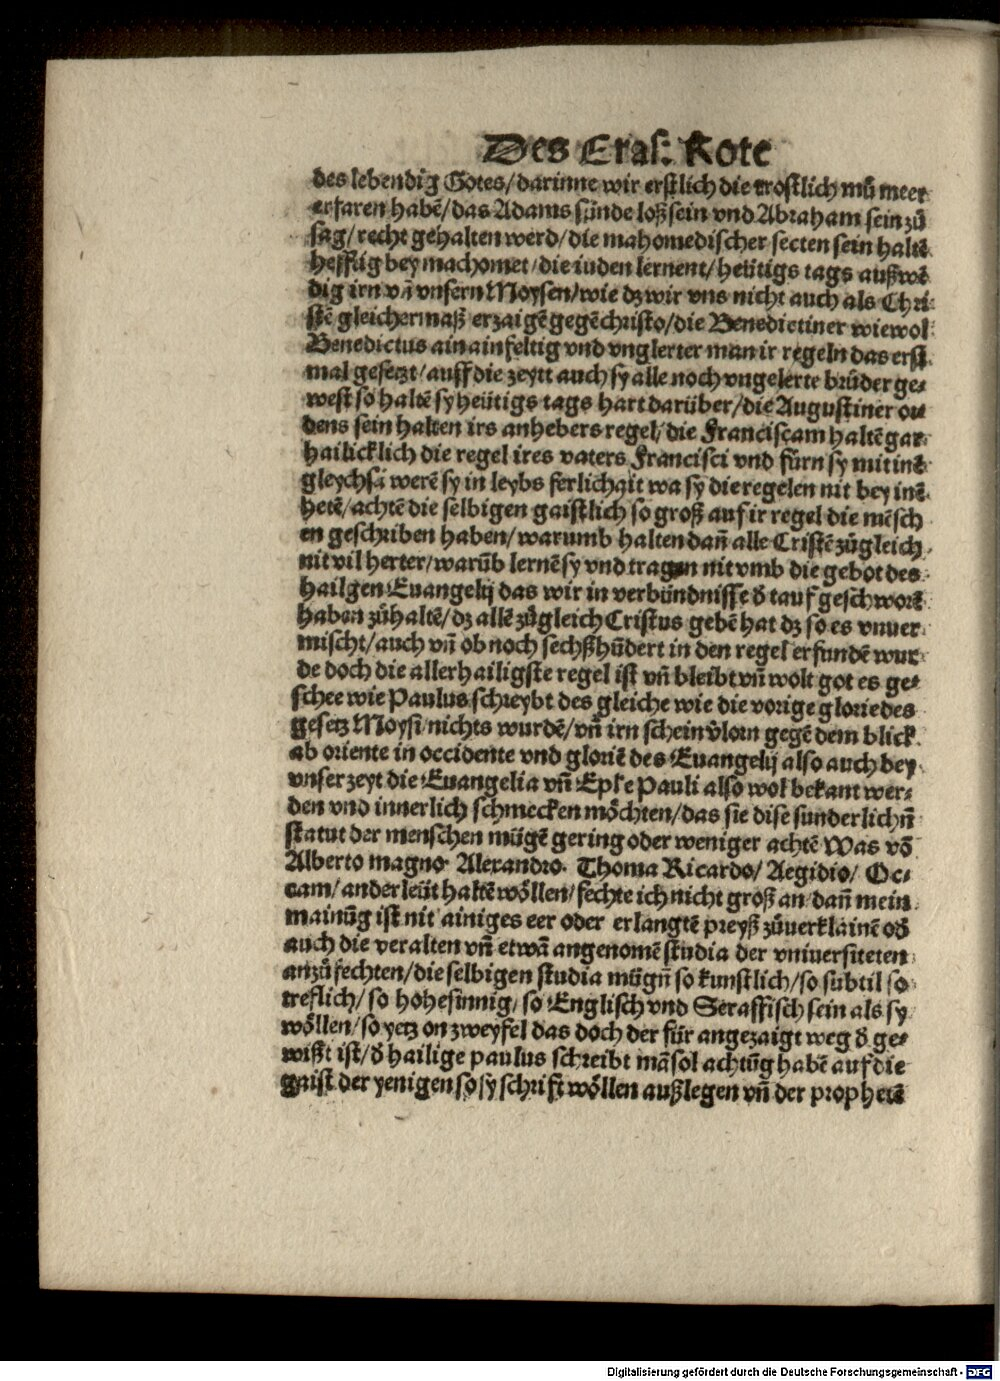 Des Eras: Rote
des lebendig Gotes/darinne wir erstlich die trostlich mū meer
erfaren habē/das Adams sünde loß sein vnd Abraham sein zů
sag/recht gehalten werd/die mahomedischer secten sein haltē
hefftig bey machomet/die iuden lernent/heütigs tags außwē
dig irn vñ vnsern Moysen/wie dz wir vns nicht auch als Chri-
stē gleichermaß erzaigē gegē christo/die Benedictiner wiewol
Benedictus ain ainfeltig vnd vnglerter man ir regeln das erst
mal gesetzt/auff die zeytt auch sy alle noch vngelerte brůder ge-
west so haltē sy heütigs tags hart darüber/die Augustiner or
dens sein halten irs anhebers regel/die Franciscam haltē gar
hailicklich die regel ires vaters Francisci vnd fürn sy mit inē
gleychsā werē sy in leybs ferlichait wa sy die regelen nit bey inē
hetē/achtē die selbigen gaistlich so groß auf ir regel die mēsch
en geschriben haben/warumb halten dañ alle Cristē zůgleich
nit vil herter/warūb lernē sy vnd tragen nit vmb die gebot des
hailgen Euangelij das wir in verbündnisse d̄ tauf geschworē
haben zůhaltē/dz allē zůgleich Cristus gebē hat dz so es vnuer
mischt/auch vñ ob noch sechßhūdert in den regel erfundē wur
de doch die allerhailigste regel ist vñ bleibt vñ wolt got es ge-
schee wie Paulus schreybt des gleiche wie die vorige glorie des
gesetz Moysi/nichts wurdē/vñ irn schein v̄lorn gegē dem blick
ab oriente in occidente vnd gloriē des Euangelij also auch bey
vnser zeyt die Euangelia vñ Eple Pauli also wol bekant wer-
den vnd innerlich schmecken möchten/das sie dise sunderlichñ
statut der menschen mügē gering oder weniger achtē Was vō
Alberto magno Alexandro Thoma Ricardo/Aegidio/Oc-
cam/ander leüt haltē wöllen/fechte ich nicht groß an/dañ mein
mainūg ist nit ainiges eer oder erlangtē preyß zůuerklainē od̄
auch die veralten vñ etwā angenomē studia der vniuersiteten
anzůfechten/die selbigen studia mügñ so kunstlich/so subtil so
treflich/so hohesinnig/so Englisch vnd Seraffisch sein als sy
wöllen/so yetz on zweyfel das doch der für angezaigt weg d̄ ge-
wißt ist/d̄ hailige paulus schreibt mā sol achtūg habē auf die
gaist der yenigen so sy schrift wöllen außlegen vñ der prophetē
Digitalisierung gefördert durch die Deutsche Forschungsgemeinschaft - DFG